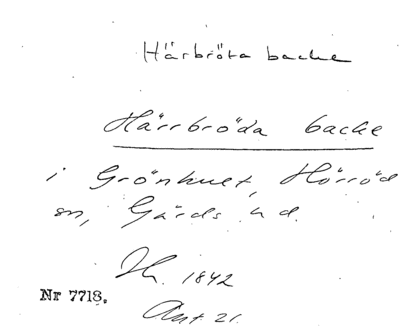 Härbröta backe
Härrbröda backe
i Grönhult, Hörröd
sn, Gärds hd.
Th. 1842
Nr 7718.
Ant 21.